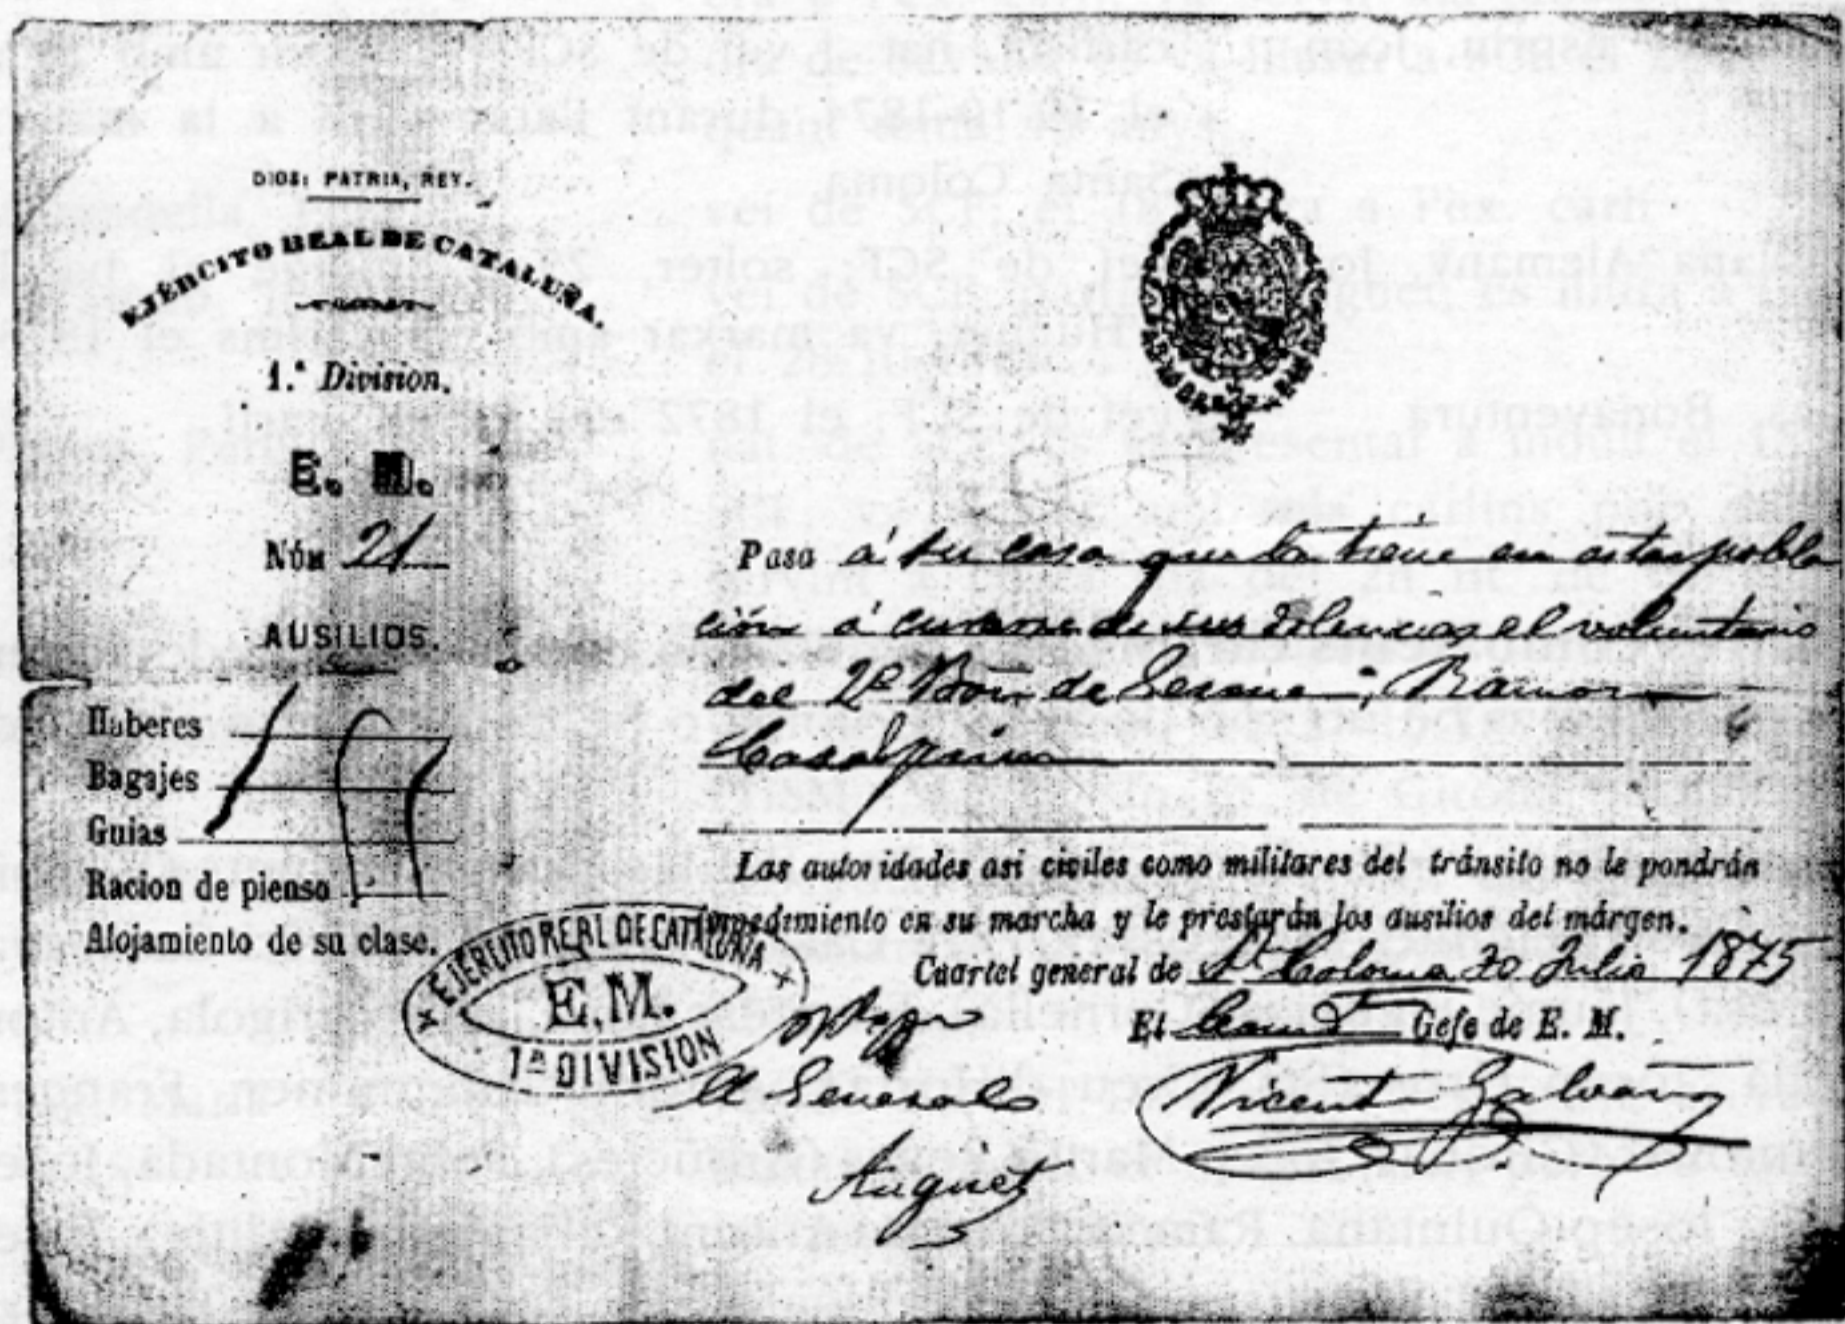 DIOS, PATRIA, REY.
EJÉRCITO REAL DE CATALUÑA.
1.ª Division.
E. M.
Núm 21
AUSILIOS.
Haberes
Bagajes
Guias
Racion de pienso
Alojamiento de su clase.
Pasa á su casa que la tiene en esta pobla
ción á curarse de sus dolencias el voluntario
del 2º Bón de Gerona, Ramon
Casa
Las autoridades asi civiles como militares del tránsito no le pondrán
impedimiento en su marcha y le prestarán los ausilios del márgen.
Cuartel general de Sta Coloma 20 Julio 1875
El Comte Gefe de E. M.
Vicente Galvañ
EJERCITO REAL DE CATALUÑA
E.M.
1ª DIVISION
El General
Auguet